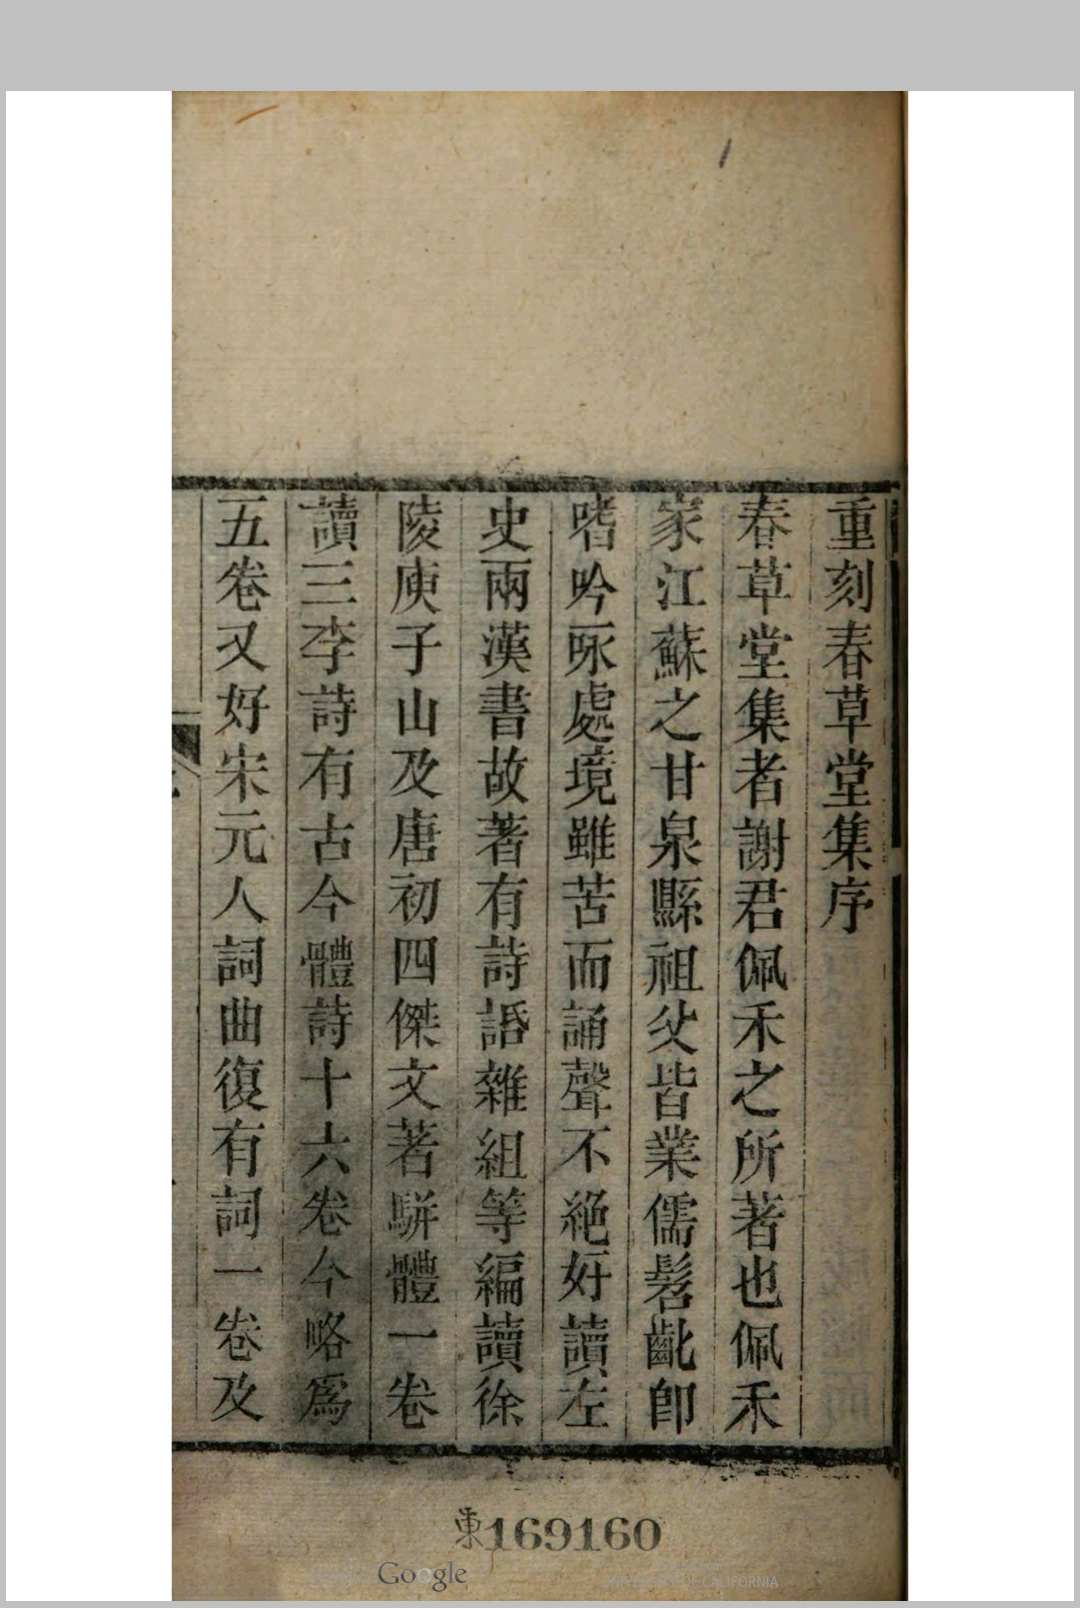 重刻春草堂集序
春草堂集者謝君佩禾之所著也佩禾
家江蘇之甘泉縣祖父皆業儒髫齔即
嗜吟咏處境雖苦而誦聲不絕好讀左
史兩漢書故著有詩話雜組等編讀徐
陵庾子山及唐初四傑文著駢體一卷
讀三李詩有古今體詩十六卷今略爲
五卷又好宋元人詞曲復有詞一卷及
東169160
Google
UNIVERSITY OF CALIFORNIA